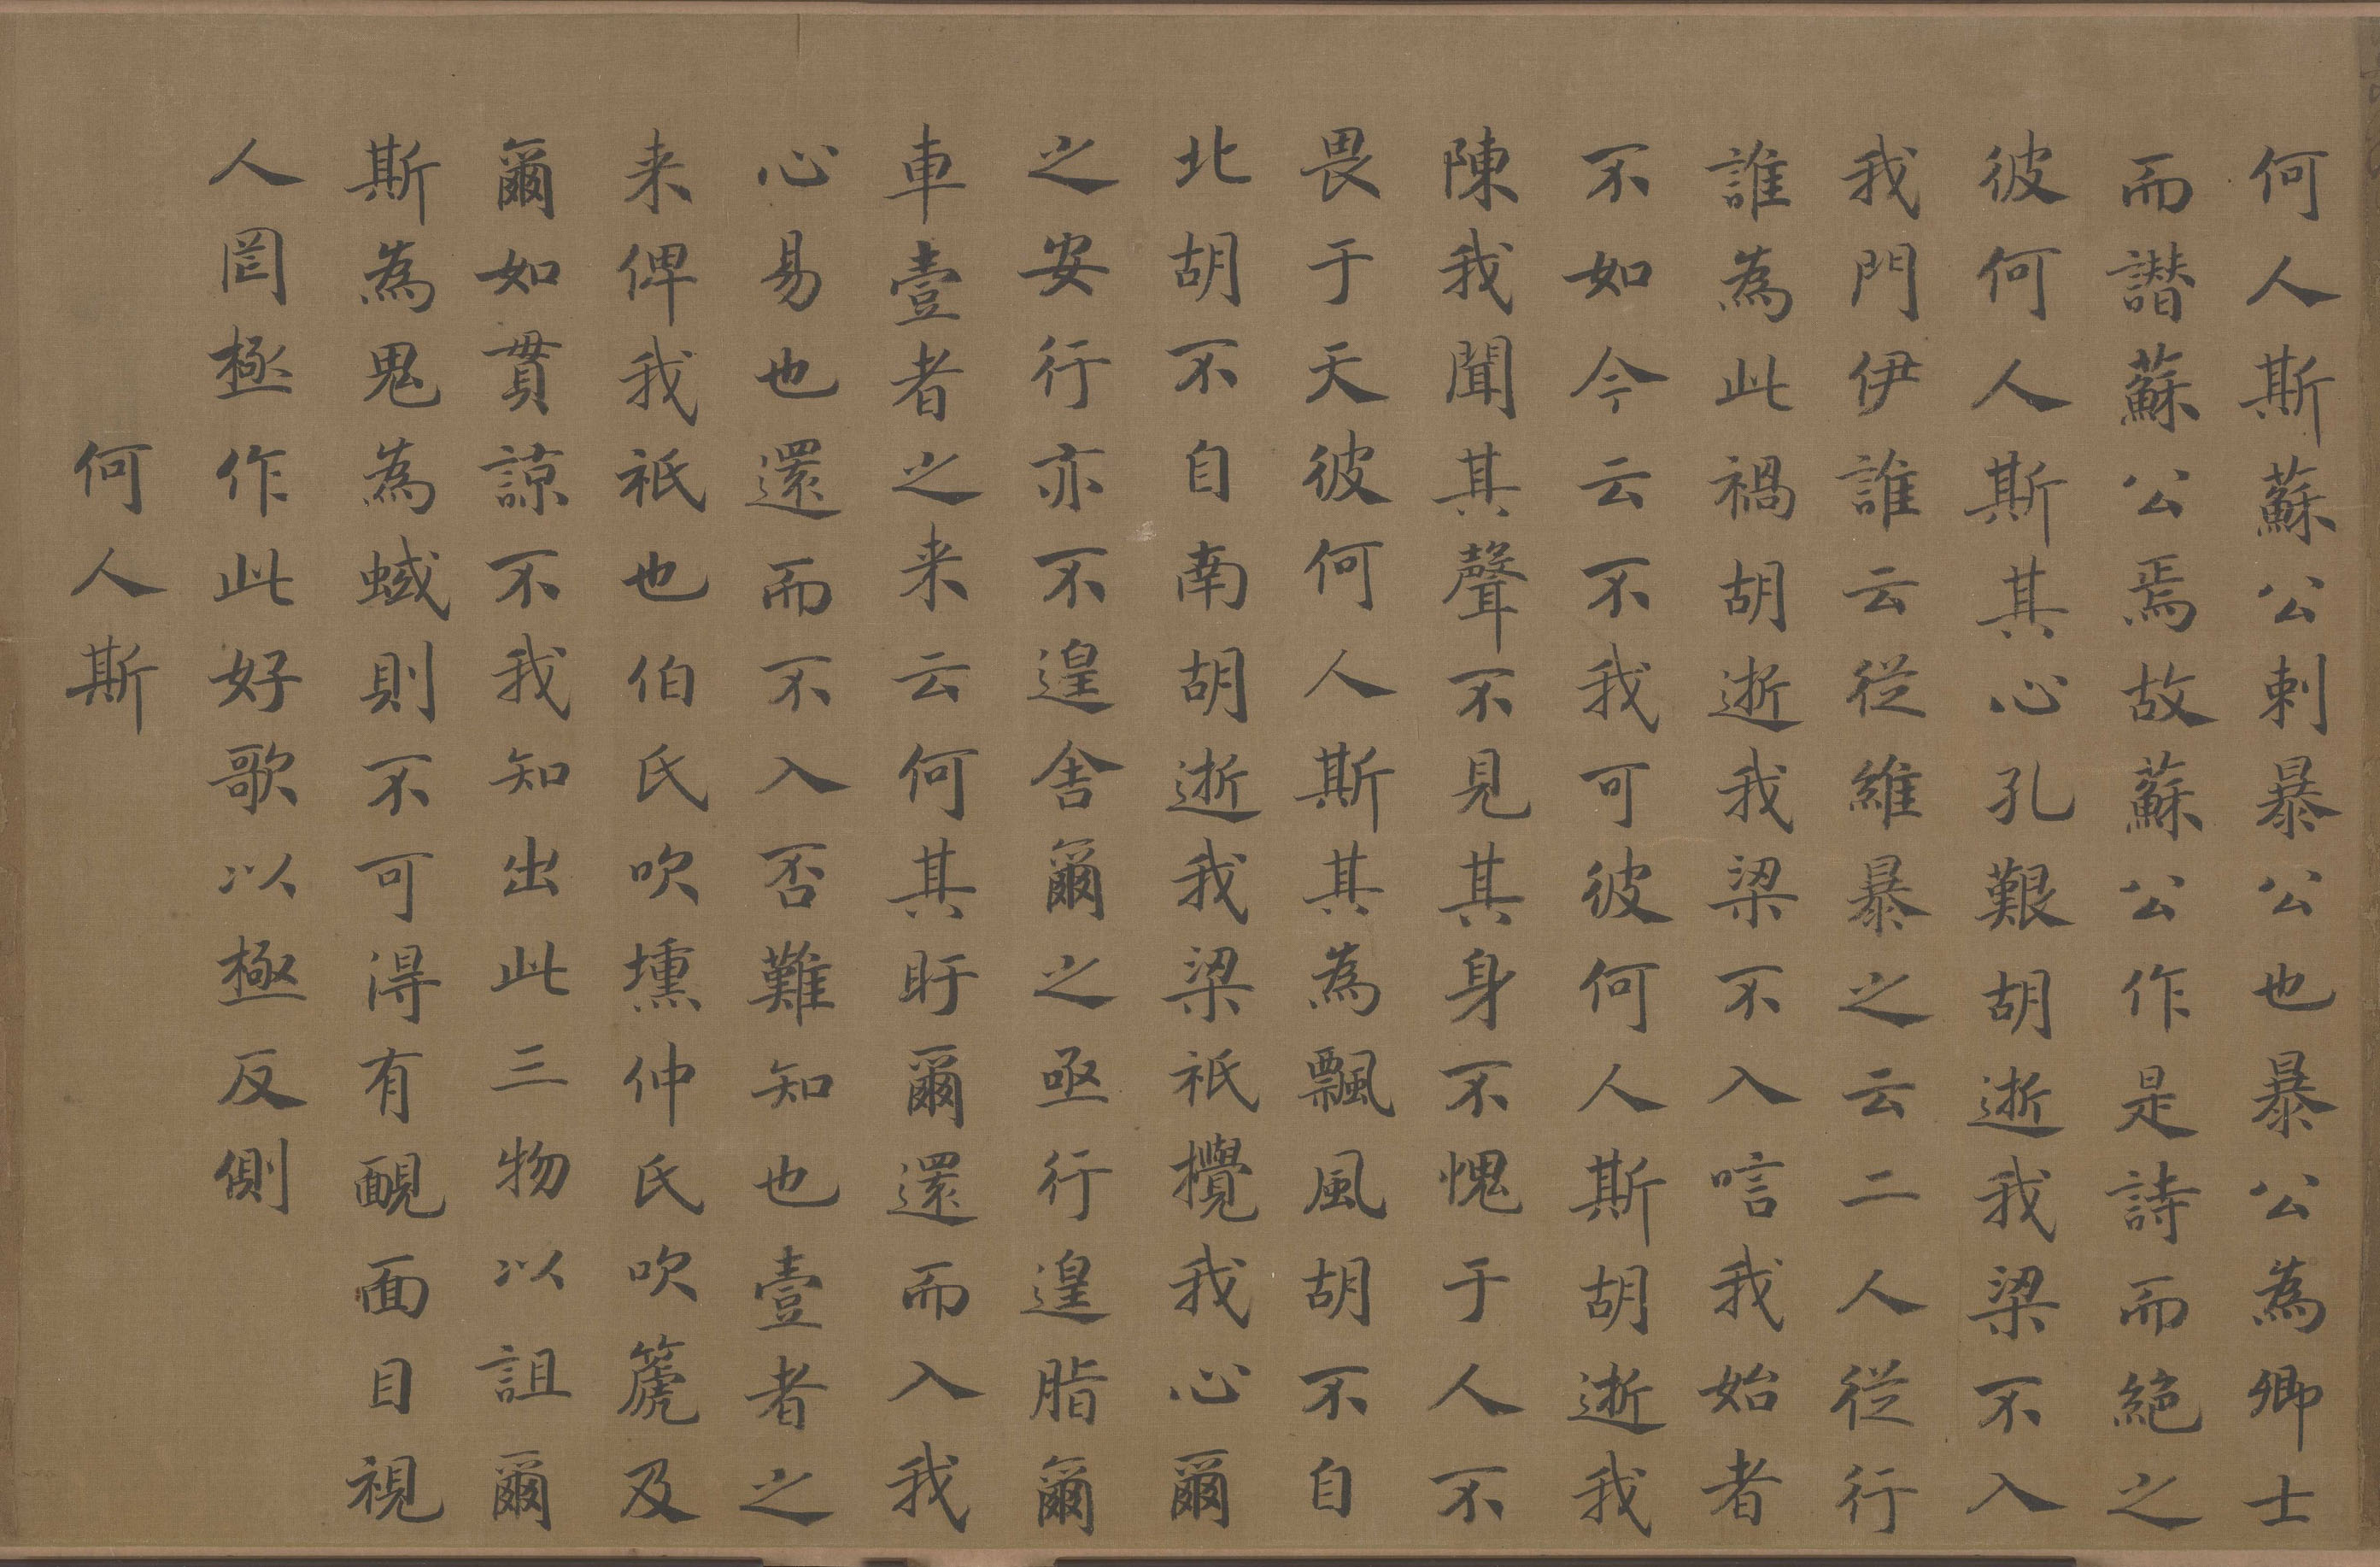 何人斯蘇公刺暴公也暴公為卿士
而譖蘇公焉故蘇公作是詩而絕之
彼何人斯其心孔艱胡逝我梁不入
我門伊誰云從維暴之云二人從行
誰為此禍胡逝我梁不入唁我始者
不如今云不我可彼何人斯胡逝我
陳我聞其聲不見其身不愧于人不
畏于天彼何人斯其為飄風胡不自
北胡不自南胡逝我梁祇攪我心爾
之安行亦不遑舍爾之亟行遑脂爾
車壹者之来云何其盱爾還而入我
心易也還而不入否難知也壹者之
来俾我祇也伯氏吹壎仲氏吹篪及
爾如貫諒不我知出此三物以詛爾
斯為鬼為蜮則不可得有靦面目視
人罔極作此好歌以極反側
何人斯